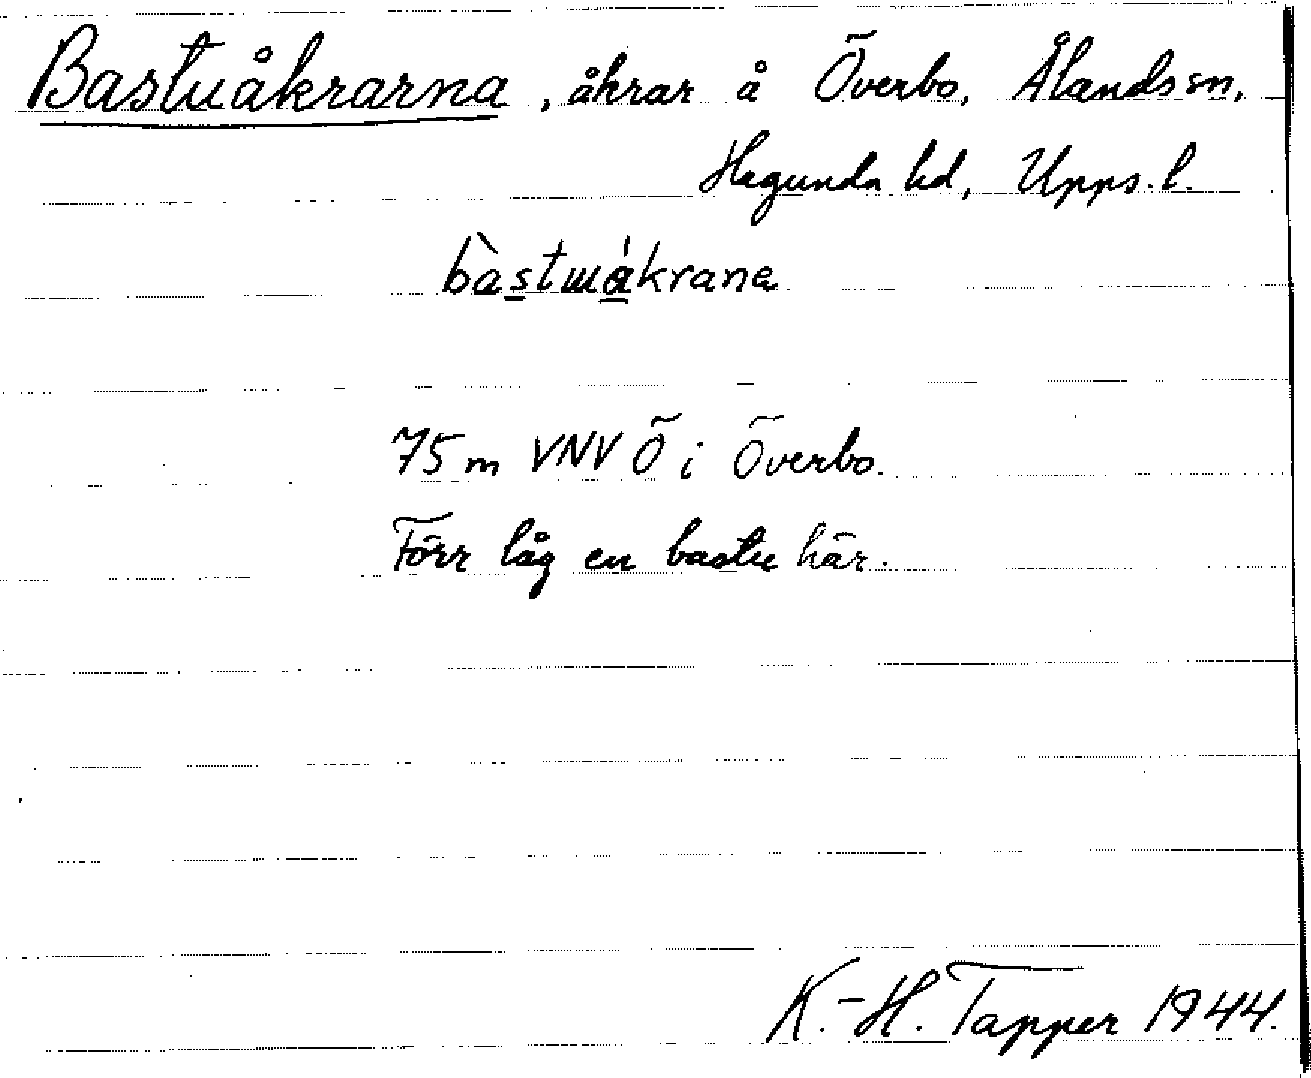 Bastuåkrarna, åkrar å Överbo, Ålands sn,
Hagunda hd, Upps. l.
bàstɯákrana
75 m VNV Ö i Överbo.
Förr låg en bastu här.
K.-H. Tapper 1944.